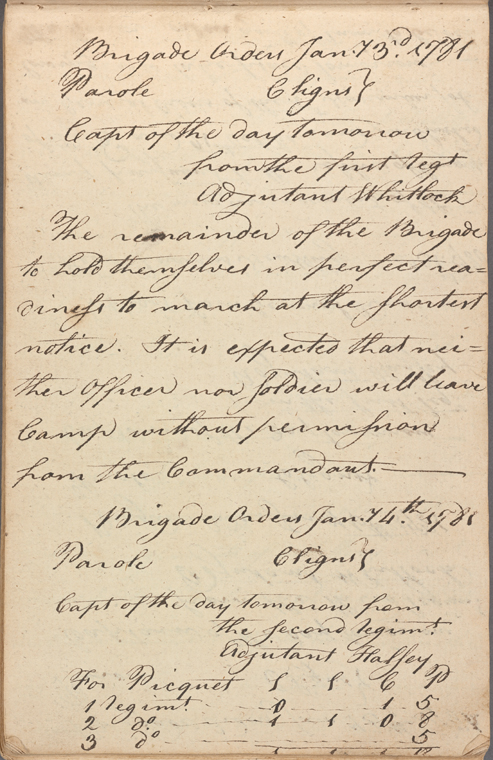 Brigade Orders Jany 3d 1781
Parole CSigns}
Capt of the day tomorrow
from the first regt
Adjutant Whitlock
The remainder of the Brigade
to hold themselves in perfect rea=
diness to march at the shortest
notice. It is expected that nei=
ther Officer nor Soldier will leave
Camp without permission
from the Commandant.
Brigade Orders Jany 4th 1781
Parole CSigns}
Capt of the day tomorrow from
the second regimt.
Adjutant Halsey
For Picquet S S C P
1 regimt. 0 1 5
2 do 1 1 0 8
3 do 5